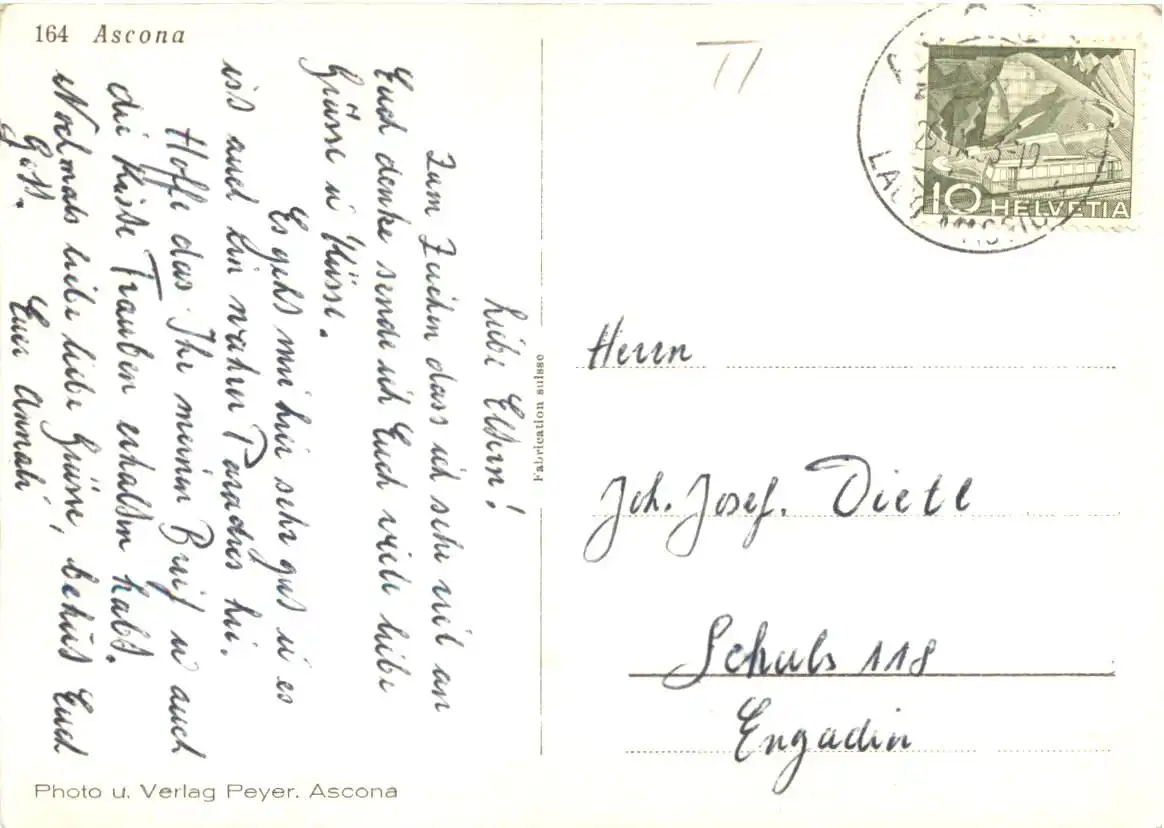 164 Ascona
Liebe Eltern!
Zum Zeichen dass ich sehr viel an
Euch denke sende ich Euch viele liebe
Grüsse u Küsse.
Es geht mir hier sehr gut u es
ist auch ein wahres Paradies hie.
Hoffe das Ihr meinen Brief u auch
die Kiste Trauben erhalten habt.
Nochmals liebe liebe Grüsse, behüt Euch
Gott.
Eure Annali
Photo u. Verlag Peyer. Ascona
Fabrication suisse
10 HELVETIA
Herrn
Joh. Josef. Dietl
Schuls 118
Engadin